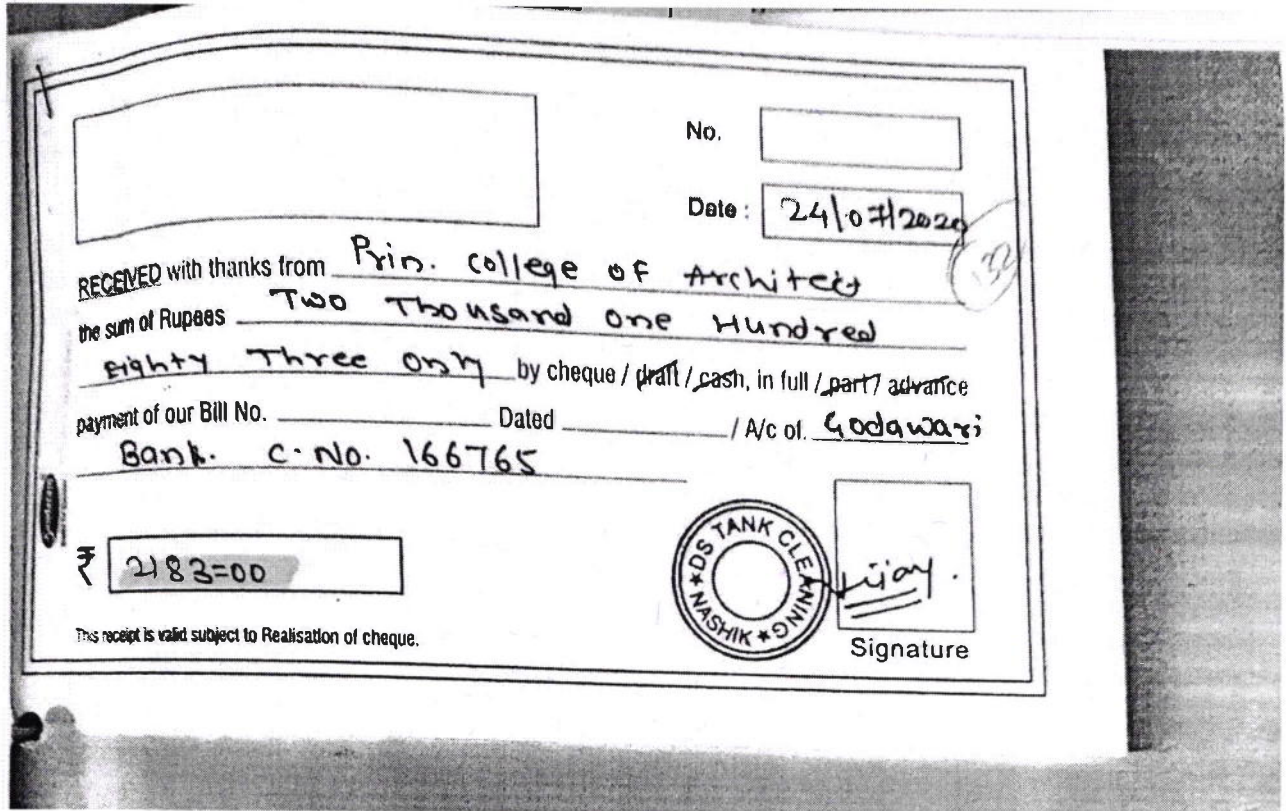 No.
Date : 24/07/2020
32
RECEIVED with thanks from Prin. College of Architect
the sum of Rupees Two Thousand one Hundred
Eighty Three Only by cheque / draft / cash, in full / part / advance
payment of our Bill No. Dated / A/c of. Godawari
Bank. C. No. 166765
₹ 2183=00
DS TANK CLEANING
NASHIK
Vijay.
This receipt is valid subject to Realisation of cheque.
Signature